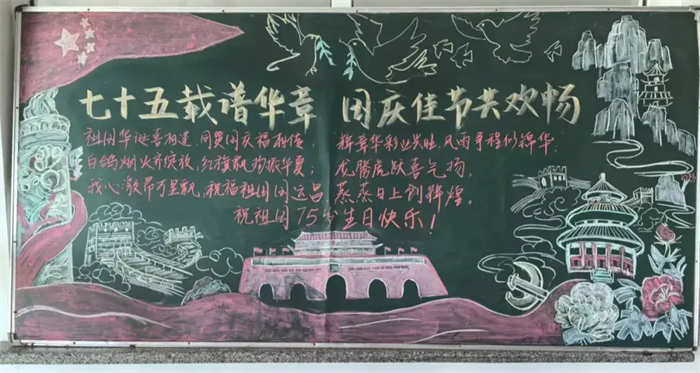 七十五载谱华章 国庆佳节共欢畅
祖国华诞喜相逢,同贺国庆福相传,
白鸽烟火齐绽放,红旗飘扬振华夏;
我心激昂万里飘,祝福祖国国运昌
辉章华彩业兴旺,风雨兼程似锦华
龙腾虎跃喜气扬,
蒸蒸日上创辉煌,
祝祖国75岁生日快乐!